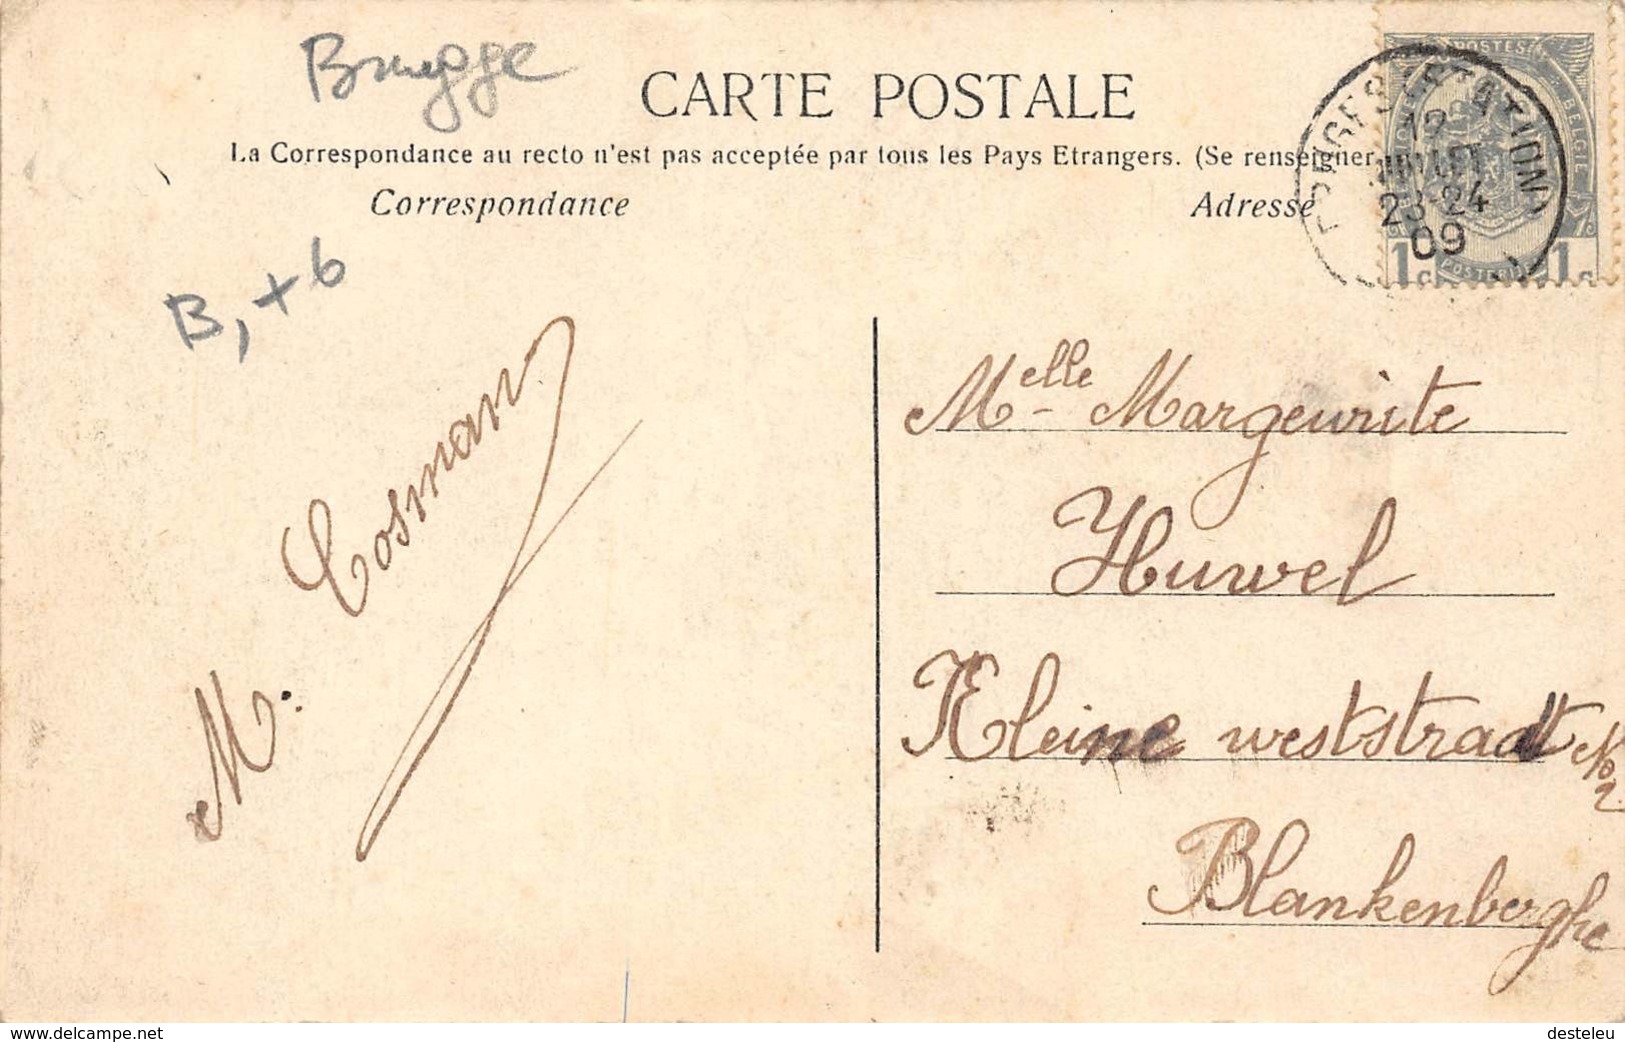 Brugge
CARTE POSTALE
La Correspondance au recto n'est pas acceptée par tous les Pays Etrangers. (Se renseigner
Correspondance
Adresse
BRUGES (STATION)
12
JUILLET
23-24
09
POSTES
BELGIE
1c 1c
B, +6
M. Cosman
Melle Margeurite
Huwel
Kleine weststraat No 2
Blankenberghe
www.delcampe.net
desteleu